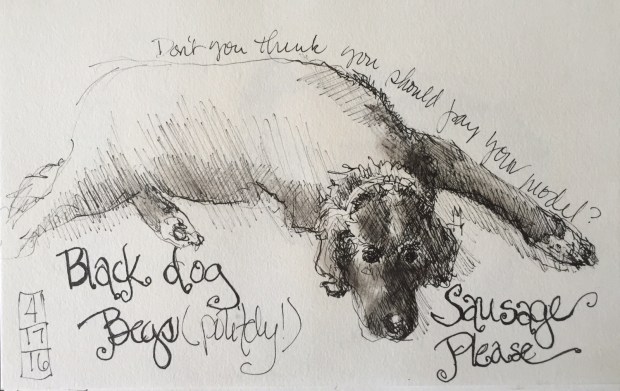 Don't you think you should pay your model?
Black dog
Begs (politely!)
Sausage
Please
4
17
16